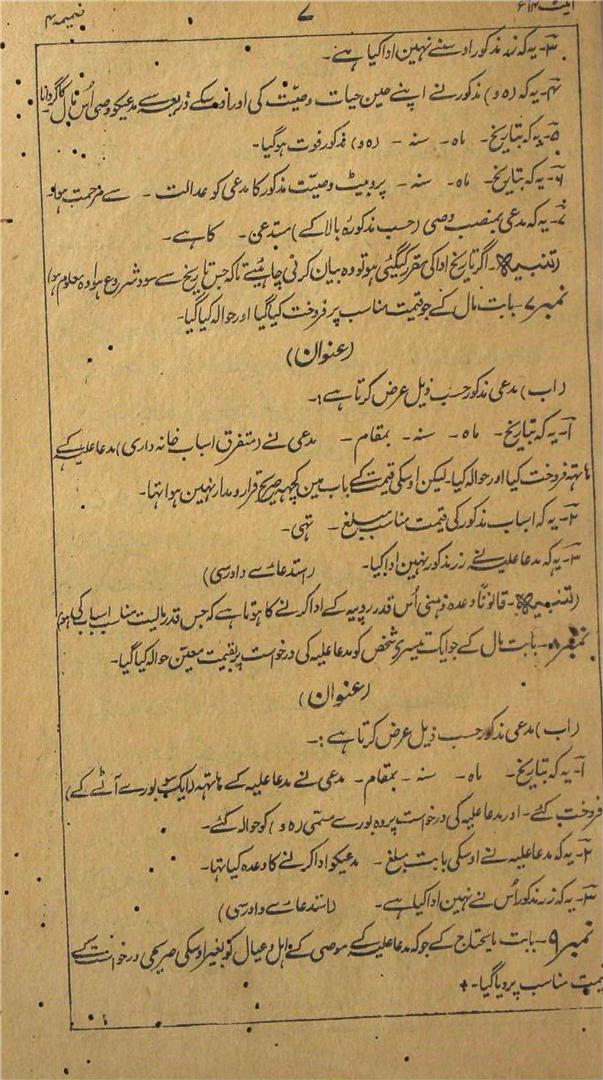 ضمیمہ ۴ ۷ ایکٹ ۱۴
۳- یہ کہ زر مذکور اوسنے نہین ادا کیا ہے۔
۴- یہ کہ (ہ و) مذکور نے اپنے حین حیات وصیّت کی اور اوسکے ذریعہ سے مدعیکو وصی اُس مال کا گردانا
۵- یہ کہ بتاریخ - ماہ - سنہ - (ہ و) مذکور فوت ہوگیا-
۶- یہ کہ بتاریخ - ماہ - سنہ - پروبیٹ وصیّت مذکور کا مدعی کو عدالت - سے مرحمت ہوا-
۷- یہ کہ مدعی بمنصب وصی (حسب مذکورہ بالا کے) مستدعی - کا ہے-
(تنبیہ)- اگر تاریخ ادا کی مقرر کیگئی ہو تو وہ بیان کرنی چاہئیے تاکہ جس تاریخ سے سود شروع ہوا وہ معلوم ہو)
نمبر ۷- بابت مال کے جو قیمت مناسب پر فروخت کیا گیا اور حوالہ کیا گیا-
(عنوان)
(اب) مدعی مذکور حسب ذیل عرض کرتا ہے:-
۱- یہ کہ بتاریخ - ماہ - سنہ - بمقام - مدعی نے (متفرق اسباب خانہ داری) مدعا علیہ کے
ہاتہہ فروخت کیا اور حوالہ کیا- لیکن اوسکی قیمت کے باب مین کچہہ صریح قرار و مدار نہین ہوا تہا-
۲- یہ کہ اسباب مذکور کی قیمت مناسب مبلغ - تہی-
۳- یہ کہ مدعا علیہ نے زر مذکور نہین ادا کیا- (استدعاے دادرسی)
(تنبیہ)- قانوناً وعدہ ذہنی اُس قدر روپیہ کے ادا کرنے کا ہوتا ہے کہ جس قدر مالیت مناسب اسباب کی ہو)
نمبر ۸- بابت مال کے جو ایک تیسرے شخص کو مدعا علیہ کی درخواست پر بقیمت معیّن حوالہ کیا گیا-
(عنوان)
(اب) مدعی مذکور حسب ذیل عرض کرتا ہے:-
۱- یہ کہ بتاریخ - ماہ - سنہ - بمقام - مدعی نے مدعا علیہ کے ہاتہہ (ایک سو بورے آٹے کے)
فروخت کئے- اور مدعا علیہ کی درخواست پر وہ بورے مسمّی (ہ و) کو حوالہ کئے-
۲- یہ کہ مدعا علیہ نے اوسکی بابت مبلغ - مدعیکو ادا کرنے کا وعدہ کیا تہا-
۳- یہ کہ زر مذکور اُس نے نہین ادا کیا ہے- (استدعاے دادرسی)
نمبر ۹- بابت مایحتاج کے جو کہ مدعا علیہ کے موصی کے اہل و عیال کو بغیر اوسکی صریحی درخواست کے
قیمت مناسب پر دیا گیا-